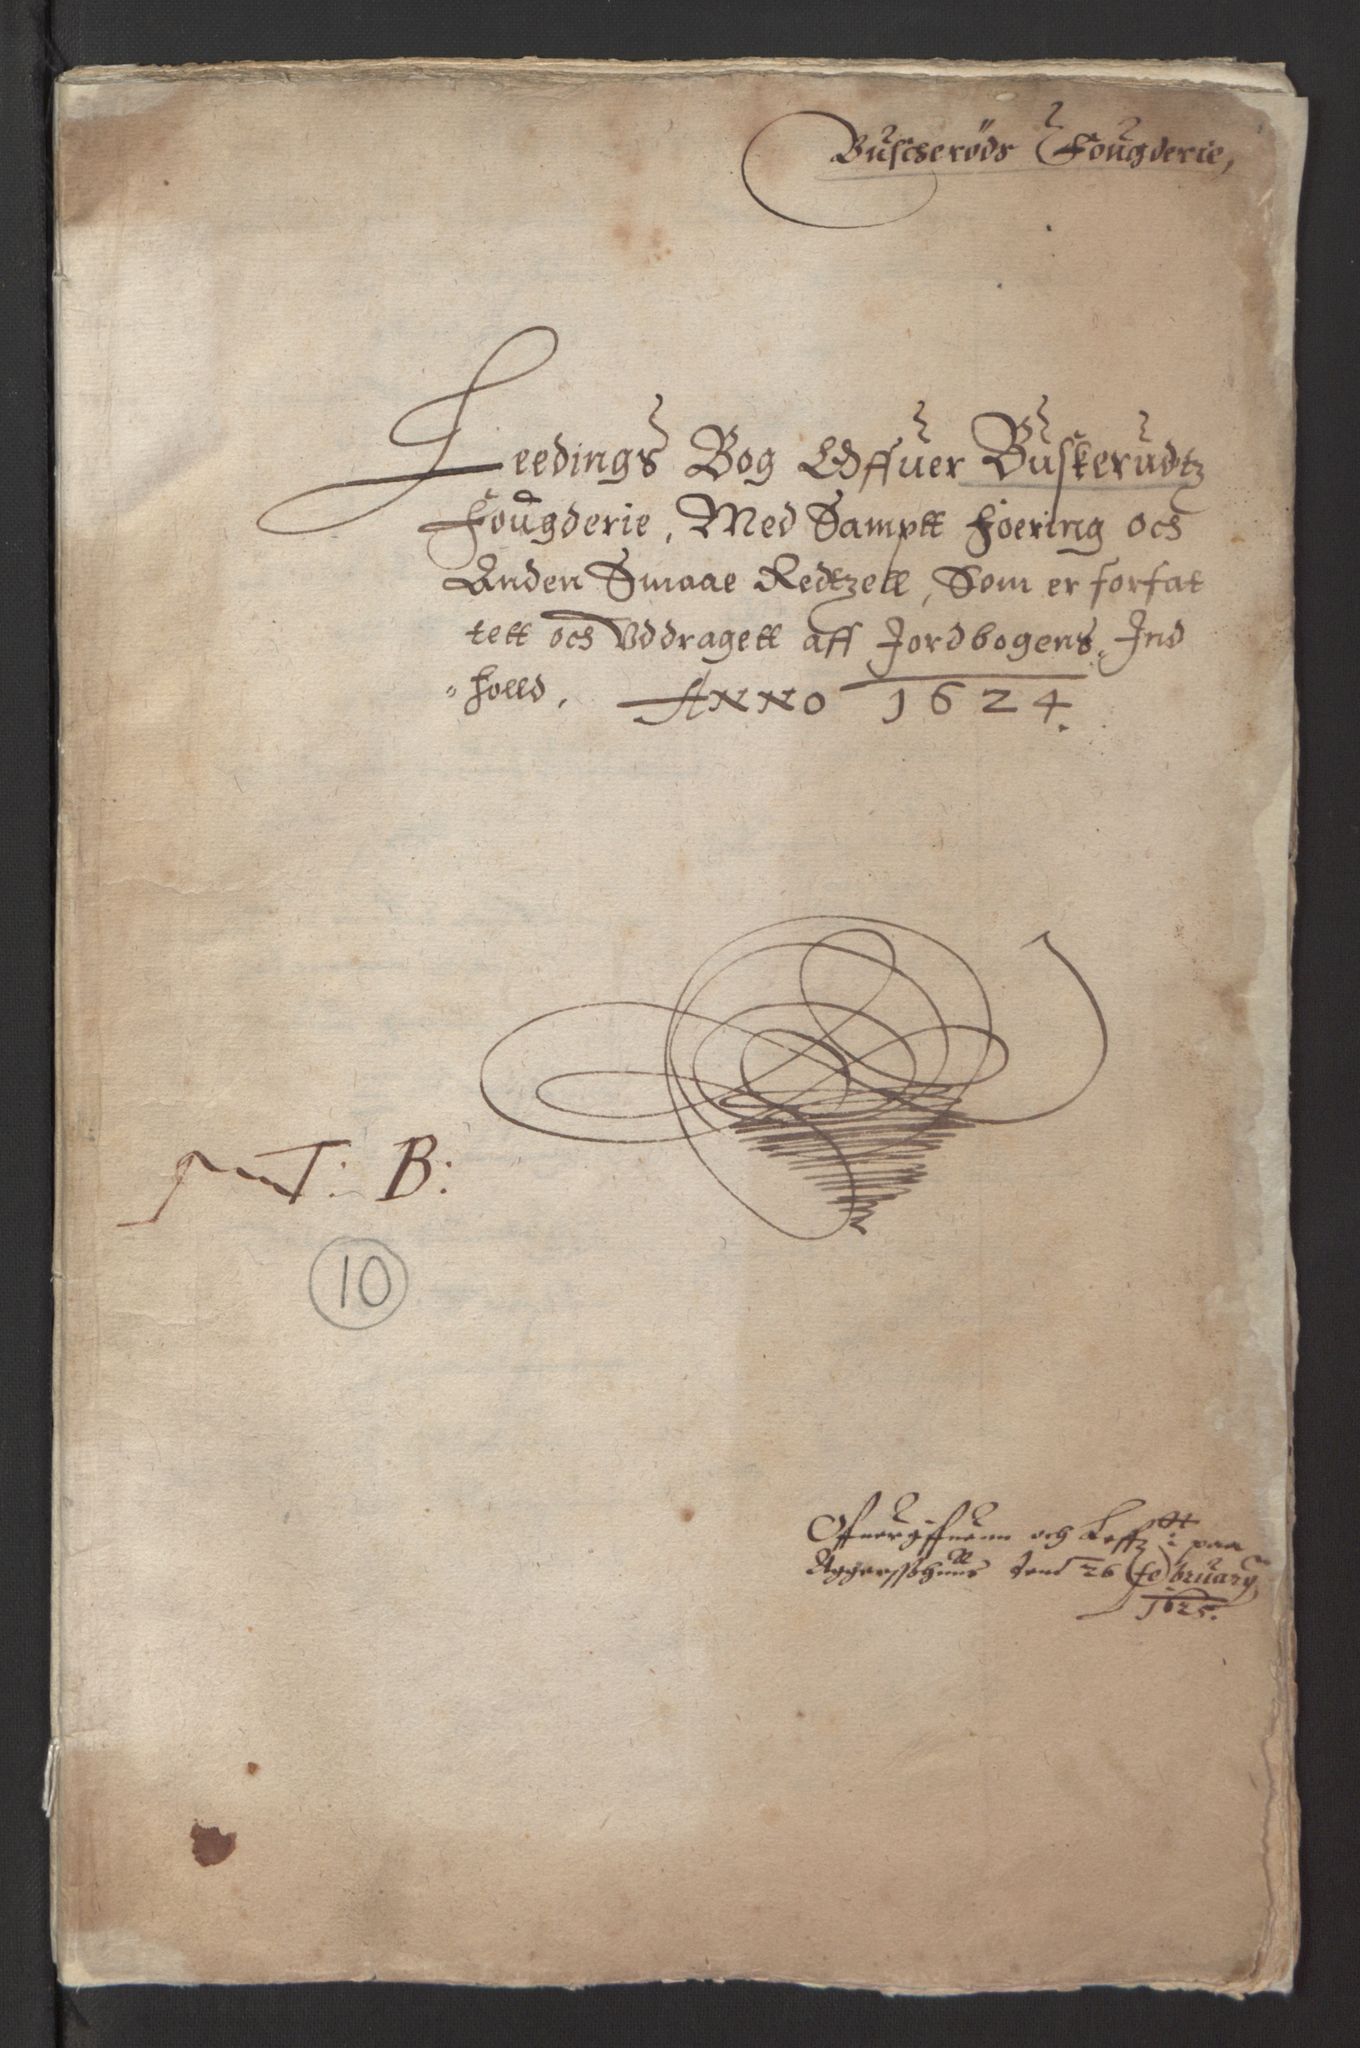 Buscherøds Fougderie,
Leedings Bog Offuer Buskerudtz
Fougderie, Med Samptt Foering och
Anden Smaae Redtzell, Som er forfat
tett och Vddragett aff Jordbogens Ind
"holld. Anno 1624.
T: B:
10
Offuergiffuenn och Leffz i paa
Aggersshuus dend 26 february
1625.